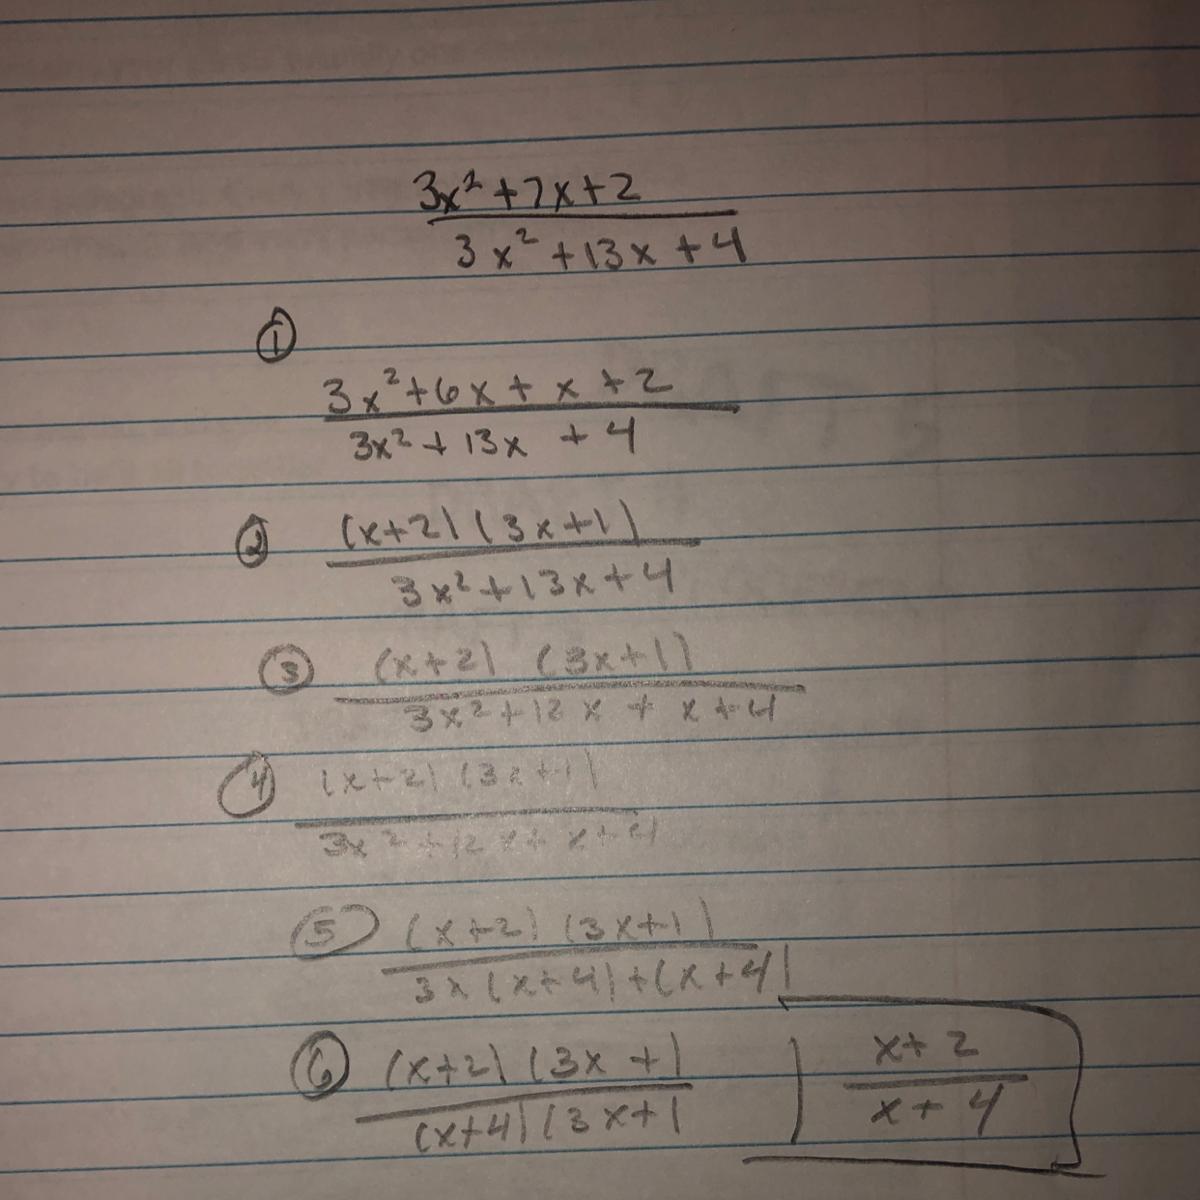 3x² + 7x + 2
3x² + 13x + 4
①
3x² + 6x + x + 2
3x² + 13x + 4
② (x+2) (3x+1)
3x² + 13x + 4
③ (x+2) (3x+1)
3x² + 12x + x + 4
④ (x+2) (3x+1)
3x² + 12x + x + 4
⑤ (x+2) (3x+1)
3x (x+4) + (x+4)
⑥ (x+2) (3x+1
(x+4) (3x+1
x+2
x+4